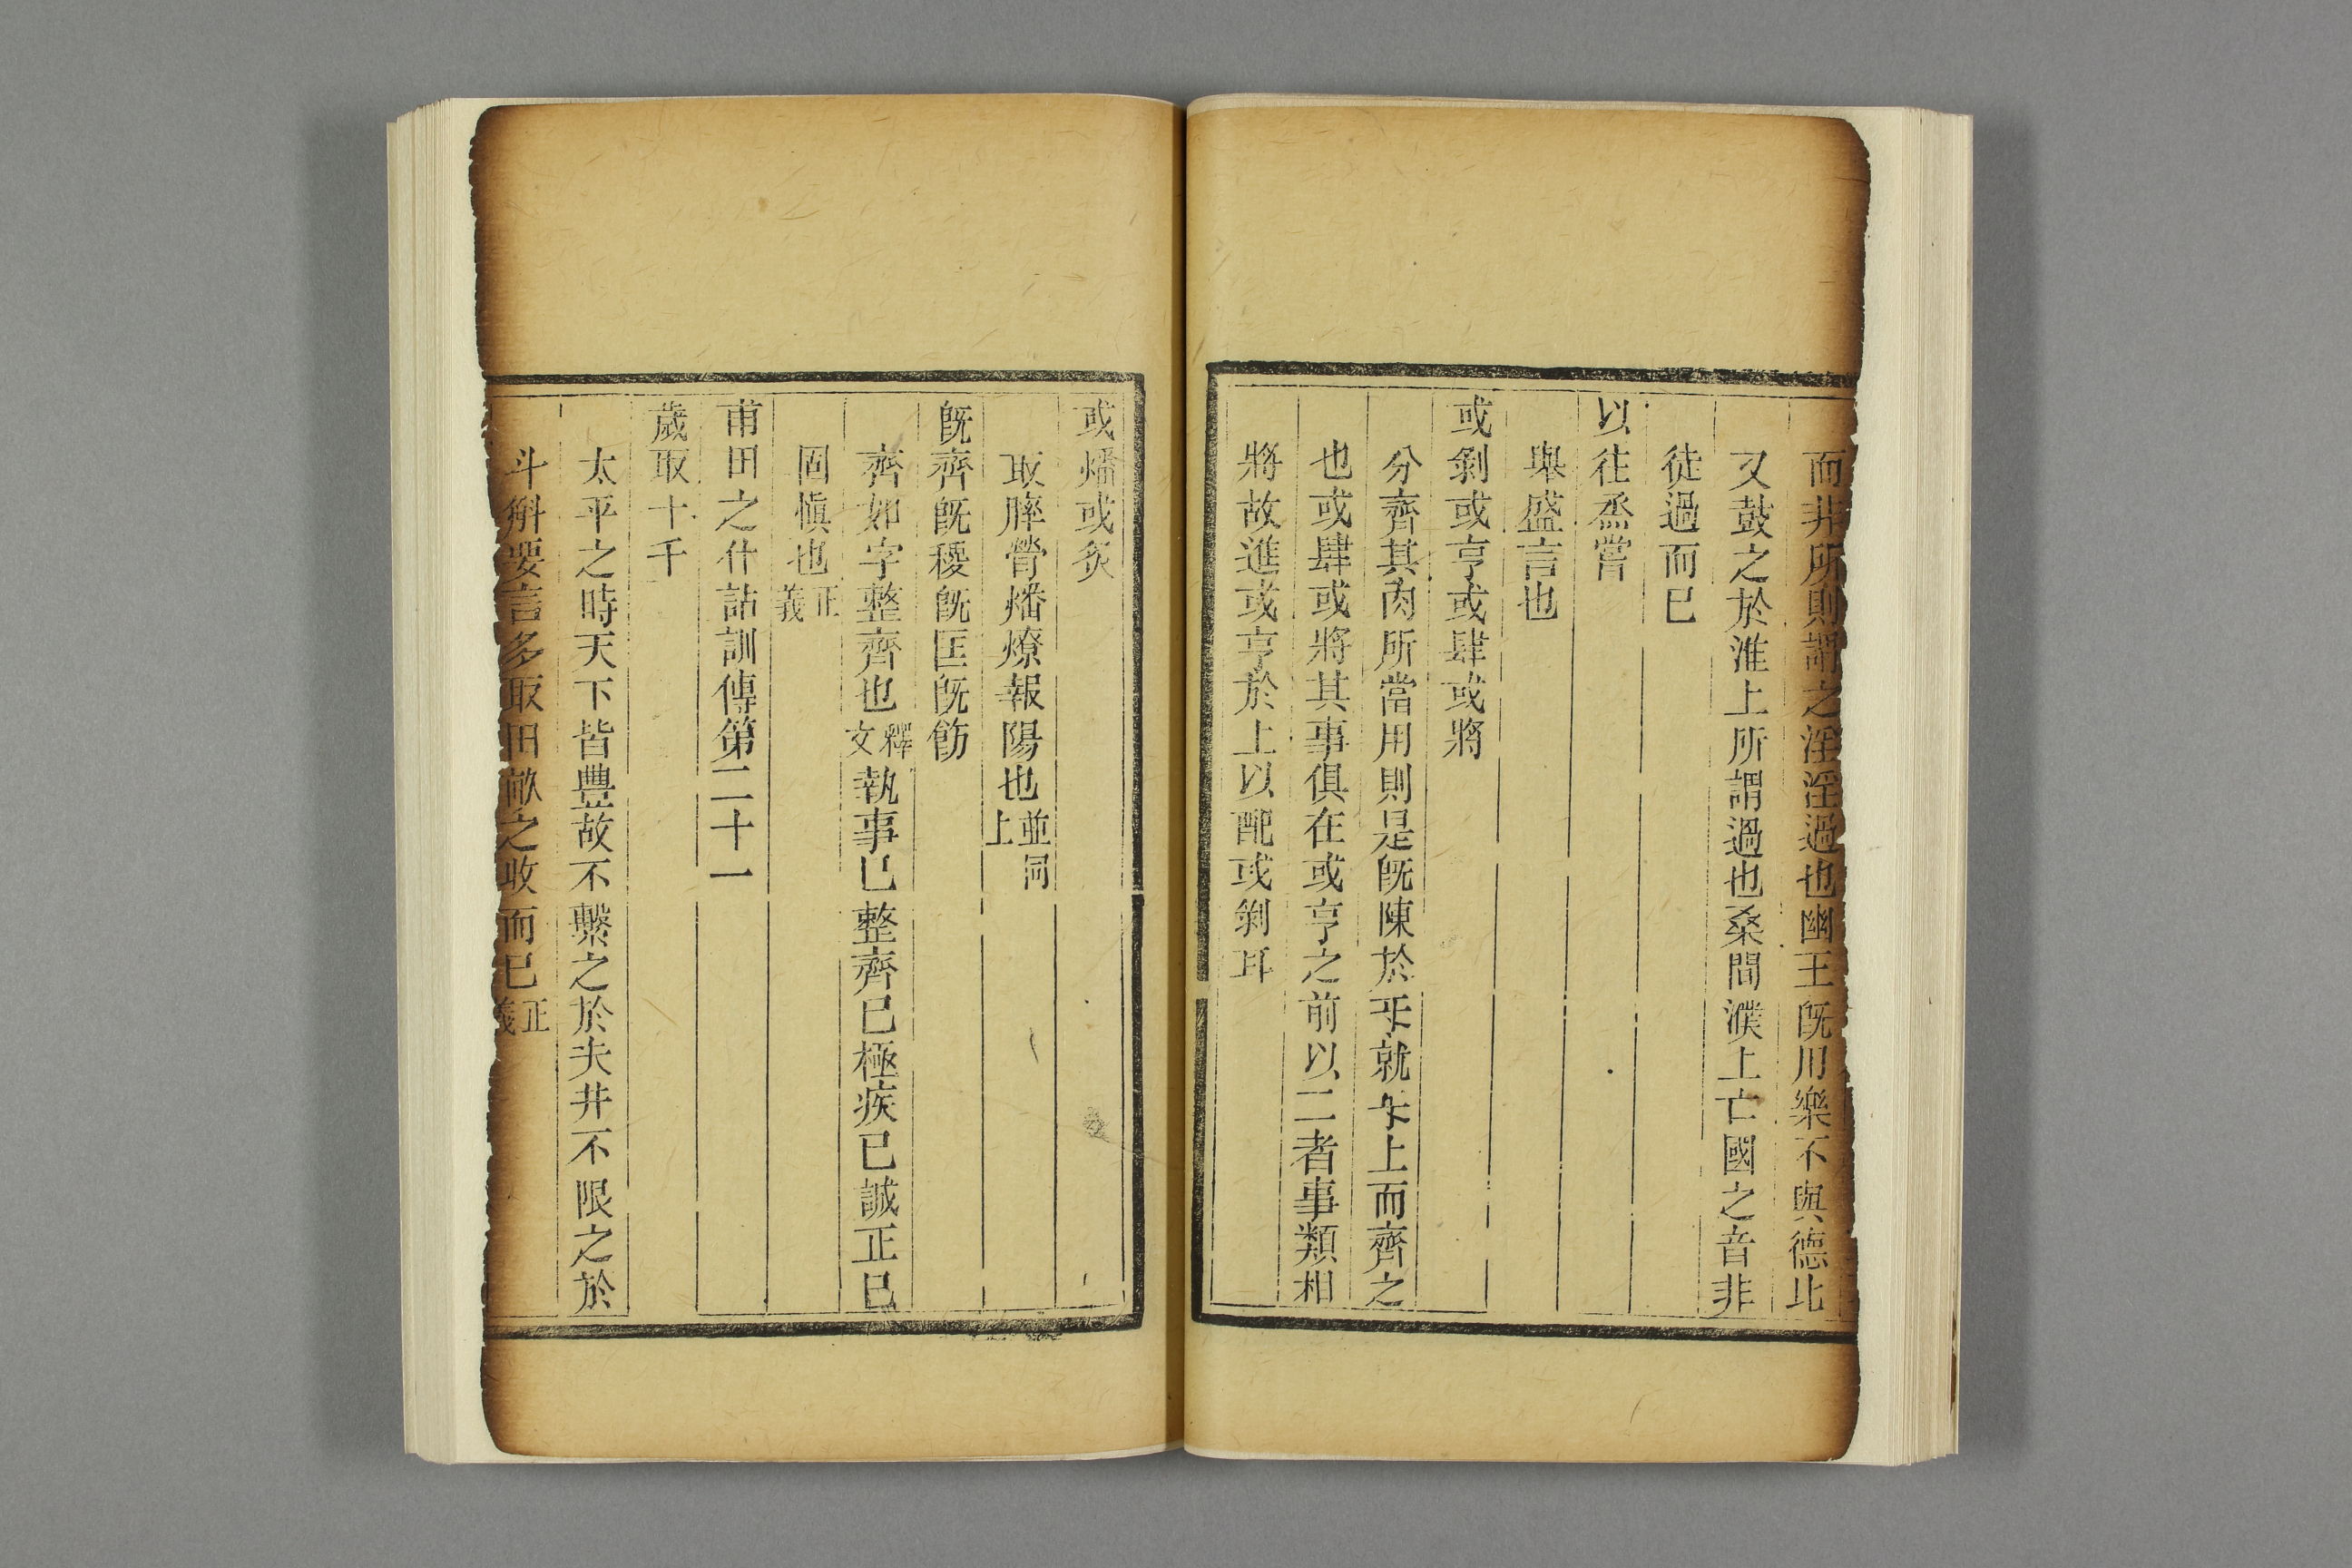 而非所則謂之淫淫過也幽王旣用樂不與德比
又鼓之於淮上所謂過也桑間濮上亡國之音非
徒過而已
以往烝嘗
舉盛言也
或剝或亨或肆或將
分齊其肉所當用則是旣陳於牙就牙上而齊之
也或肆或將其事俱在或亨之前以二者事類相
將故進或亨於上以配或剝耳
或燔或炙
取膟膋燔燎報陽也並同上
旣齊旣稷旣匡旣飭
齊如字整齊也釋文執事已整齊已極疾已誠正已
固愼也正義
甫田之什詁訓傳第二十一
歲取十千
太平之時天下皆豊故不繫之於夫井不限之於
斗斛要言多取田畝之收而已正義